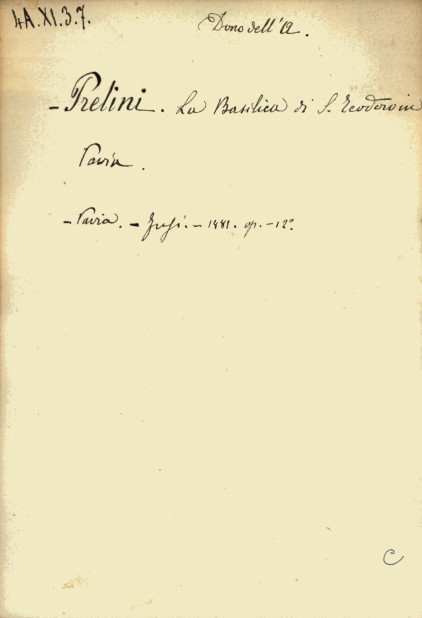 4A.XI.3.7.
Dono dell'A.
- Prelini. La Basilica di S. Teodoro in
Pavia.
- Pavia. - Fusi. - 1881. op. - 12º.
C